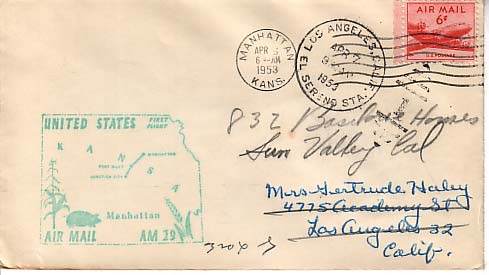 MANHATTAN
APR
6-AM
1953
KANS.
LOS ANGELES, CALIF.
APR 7
1953
EL SERENO STA.
AIR MAIL
6¢
UNITED STATES
FIRST
FLIGHT
KANSAS
MANHATTAN
FORT RILEY
JUNCTION CITY
Manhattan
AIR MAIL AM 29
832 Homes
Sun Valley Cal
Mrs. Gertrude Haley
4775 Academy St
Los Angeles 32
Calif.